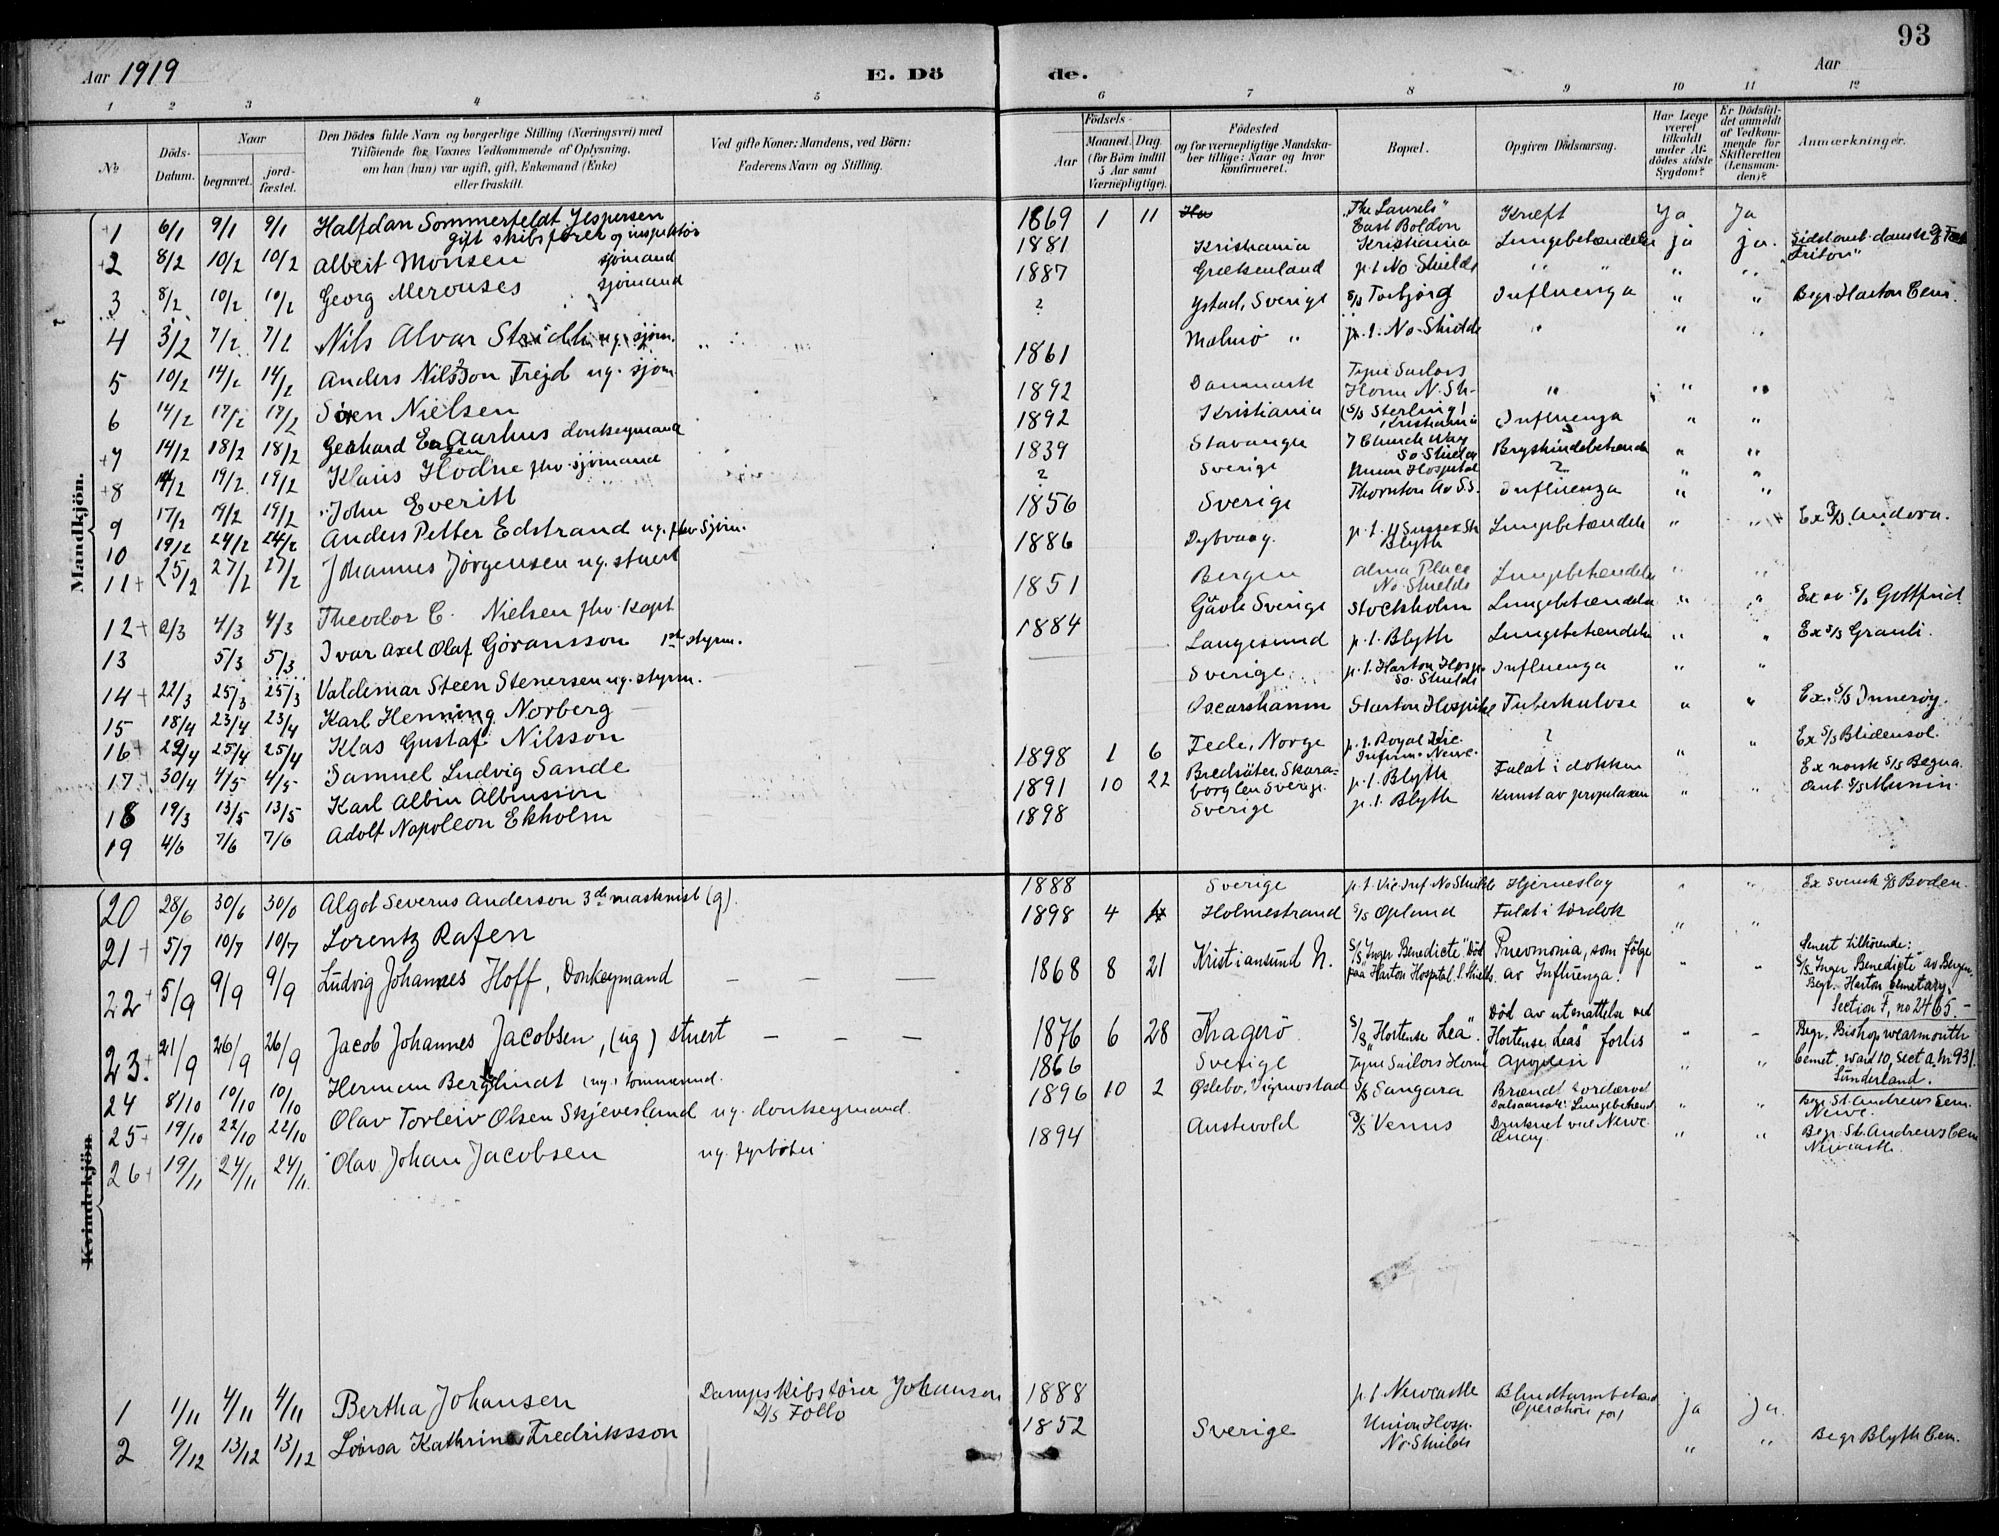 93
Aar 1919
E. Döde.
Aar
1 2 3 4 5 6 7 8 9 10 11 12
№
Döds-Datum.
Naar
begravet.
jord-fæstet.
Den Dödes fulde Navn og borgerlige Stilling (Næringsvei) med
Tilföiende for Voxnes Vedkommende af Oplysning,
om han (hun) var ugift, gift, Enkemand (Enke)
eller fraskilt.
Ved gifte Koner: Mandens, ved Börn:
Faderens Navn og Stilling.
Födsels-
Aar
Maaned. Dag.
(for Börn indtil
5 Aar samt
Værnepligtige).
Födested
og for værnepligtige Mandska-
ber tillige: Naar og hvor
konfirmeret.
Bopæl.
Opgiven Dödsaarsag.
Har Læge
været
tilkaldt
under Af-
dödes sidste
Sygdom?
Er Dödsfal-
det anmeldt
af Vedkom-
mende for
Skifteretten
(Lensman-
den)?
Anmærkninger.
Mandkjön.
1 6/1 9/1 9/1 Halfdan Sommerfeldt Jespersen
gift skibsfører og inspektør
1869 1 11 "The Laurels" East Boldon Kræft Ja Ja
2 8/2 10/2 10/2 Albert Monsen sjømand
1881 Kristiania Kristiania Lungebetændelse ja ja. Sidst ombord dansk "Triton"
3 8/2 10/2 10/2 Georg Merouses sjømand
1887 Grækenland p.t. No Shields " " " "
4 3/2 7/2 7/2 Nils Alvar Stridh ug. sjøm.
? Ystad, Sverige S/S Torbjörg Influenza " " Begr. Harton Cem.
5 10/2 14/2 14/2 Anders Nilsson Frejd ug. sjøm
1861 Malmö " p.t. No. Shields " " "
6 14/2 17/2 17/2 Sören Nielsen
1892 Danmark Tyne Sailors Home N. Sh. " " "
7 14/2 18/2 18/2 Gerhard Aarhus donkeymand
1892 Kristiania (S/S Sterling) Kristiania Influenza " "
8 14/2 19/2 19/2 Klaus Hodne fhv. sjømand
1839 Stavanger 7 Church Way So Shields " "
9 17/2 19/2 19/2 John Everitt
? Sverige Union Hospital ? " "
10 19/2 24/2 24/2 Anders Petter Edstrand ug. fhv. sjøm.
1856 Sverige Thornton Av S.S. Influenza " "
11 25/2 27/2 27/2 Johannes Jørgensen ug. stuert
1886 Dybvaag. p.t. 11 Sussex Str Blyth Lungebetændelse " " Ex S/S Andora.
12 2/3 4/3 4/3 Theodor C. Nielsen fhv. Kapt
1851 Bergen Alma Place No. Shields Lungebetændelse " "
13 5/3 5/3 Ivar Axel Olaf Göransson 1st styrm.
1884 Gävle Sverige Stockholm Lungebetændelse " " Ex av S/S Gottfrid
14 22/3 25/3 25/3 Valdemar Steen Stenersen ug. styrm.
Langesund p.t. Blyth Lungebetændelse " " Ex S/S Granli.
15 18/4 23/4 23/4 Karl Henning Norberg
Sverige. p.t. Harton Hosp. So. Shields Influenza " "
16 22/4 25/4 25/4 Klas Gustaf Nilsson
Oscarshamn Harton Hospital Tuberkulose " " Ex. S/S Innerøy.
17 30/4 4/5 4/5 Samuel Ludvig Sande
1898 1 6 Fede, Norge p.t. Royal Vic. Infirm. Newc. ? " " Ex S/S Blidensol.
18 19/3 13/5 13/5 Karl Albin Albinsson
1891 10 22 Skaraborg Len Sverige. p.t. Blyth Faldt i dokken Ex norsk S/S Begna.
19 4/6 7/6 7/6 Adolf Napoleon Ekholm
1898 Sverige p.t. Blyth av propellaxen " " S/S Munin.
20 28/6 30/6 30/6 Algot Severus Anderson 3de maskinist (g).
1888 Sverige p.t. Vic Inf No Shields Hjerneslag " " Ex svensk S/S Boden.
21 5/7 10/7 10/7 Lorentz Rafen
1898 4 Holmestrand S/S Opland Faldt i tørdok " "
22 5/9 9/9 9/9 Ludvig Johannes Hoff, Donkeymand – – –
1868 8 21 Kristiansund N. S/S "Inger Benedicte" Död paa Harton Hospital S. Shields Pneumonia, som fölge av Influenza. " " Senest tilhörende: S/S "Inger Benedicte" av Bergen. Begr. Harton cemetary, Section F, no 2465.–
23. 21/9 26/9 26/9 Jacob Johannes Jacobsen, (ug) stuert – – –
1876 6 28 Kragerö S/S "Hortense Lea" Död av utmattelse ved "Hortense Leas" forlis " – Begr. Bishopwearmouth Cemet. ward 10, Sect a, Nr 931 Sunderland.
24 8/10 10/10 10/10 Herman Berglindt (ug.) tømmermd.
1866 Sverige Tyne Sailors Home Apoplexi "
25 19/10 22/10 22/10 Olav Torleiv Olsen Skjevesland ug. donkeymand.
1896 10 2 Øslebø, Vigmostad S/S Sangara Lungebetænd " " Begr St. Andrews Cem. Newc.
26 19/11 24/11 24/11. Olav Johan Jacobsen ug. fyrbøter
1894 Austevold D/S Venus Druknet ved Newc. Quay. " " Begr. St. Andrews Cem Newcastle.
Kvindekjön
1 1/11 4/11 4/11 Bertha Johansen Dampskibsfører Johansen D/S Follo
1888 p.t. Newcastle Blindtarmbetænd Operation for ja ja.
2 9/12 13/12 13/12 Lovisa Kathrine Fredriksson
1852 Sverige Union Hosp. No. Shields " " Begr Blyth Cem.